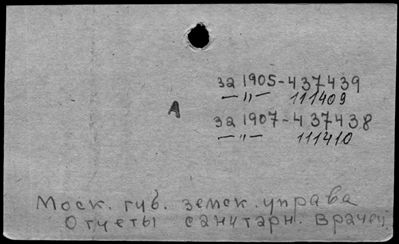 за 1905-437439
— " — 111409
А
за 1907-437438
— " — 111410
Моск. губ. земск. управа
Отчеты санитарн. врачей